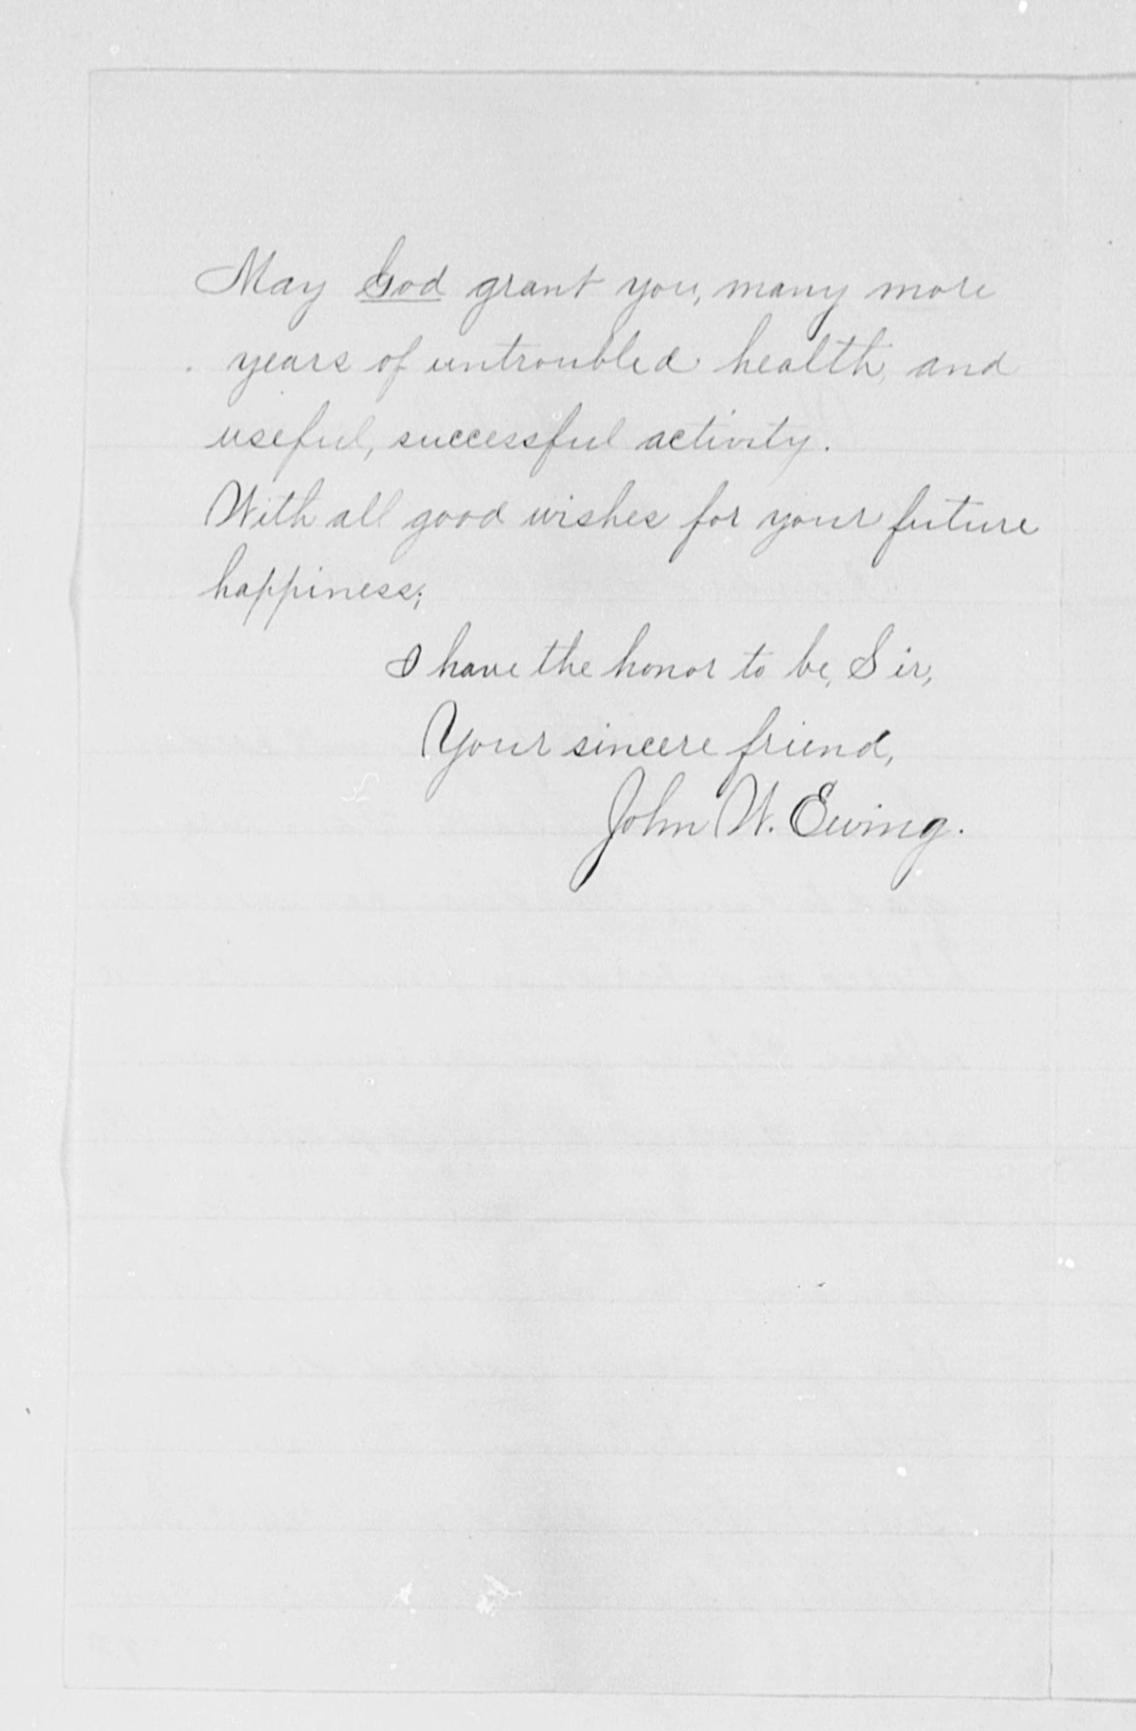 May God grant you, many more
years of untroubled health, and
useful, successful activity.
With all good wishes for your future
happiness;
I have the honor to be, Sir,
Your sincere friend,
John W. Ewing.